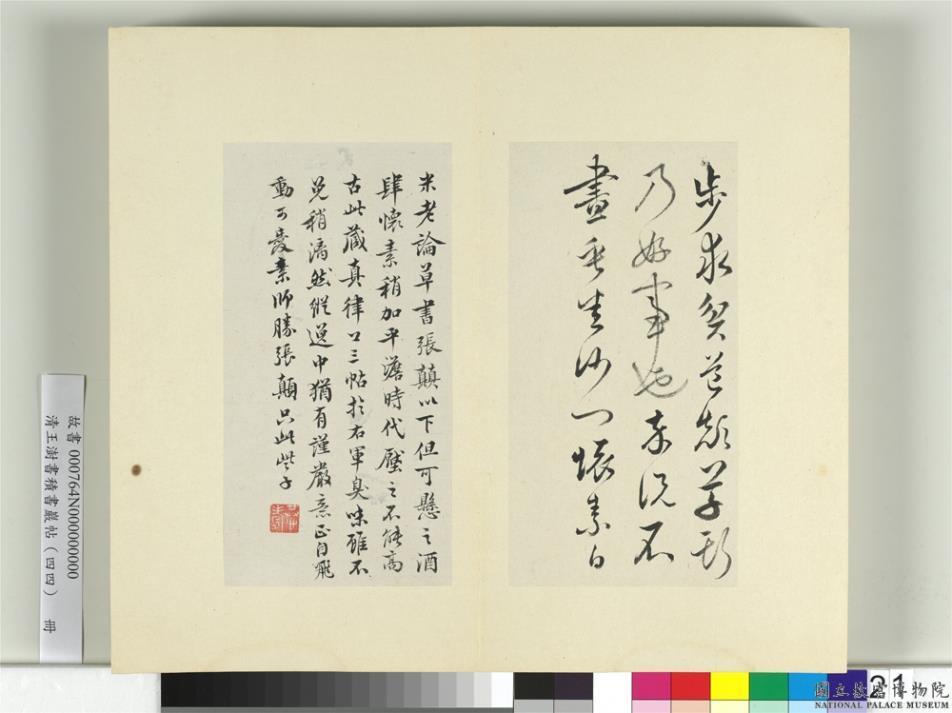 步求貧道顛草斯
乃好事也卒復不
盡垂悉沙門懷素白
米老論草書張顛以下但可懸之酒
肆懷素稍加平澹時代壓之不能高
古此藏真律公三帖於右軍臭味雖不
免稍漓然縱逸中猶有謹嚴意正自飛
動可愛素師勝張顛只此些子
故書 000764N000000000
清王澍書積書巖帖（四四） 冊
21
國立故宮博物院
NATIONAL PALACE MUSEUM